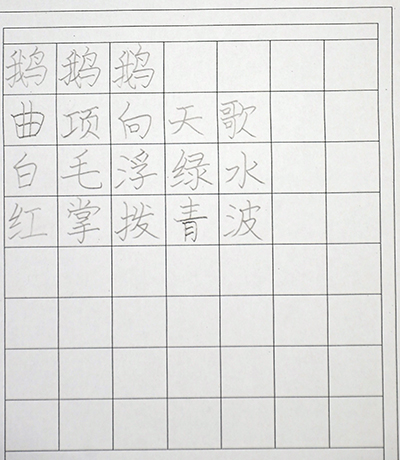 鹅鹅鹅
曲项向天歌
白毛浮绿水
红掌拨青波